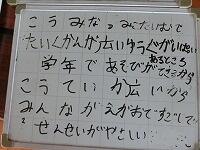 こうみな
たいくかんが広いゆうぐがいっぱい
学年であそびができるから
あるところ
こうていが広いから
みんながえがおですごして
せんせいがやさしい